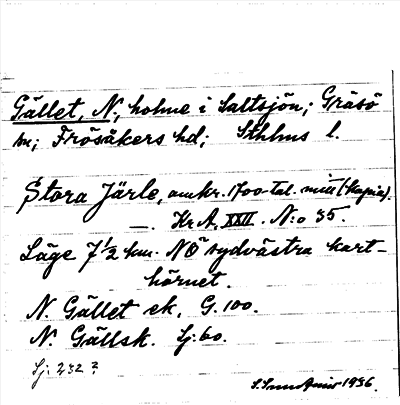 Gället, N., holme i Saltsjön; Gräsö
sn; Frösåkers hd; Sthlms l.
Stora Järle, omkr. 1700-tal. mitt (kopia).
—. Kr.A. XXII. N:o 35.
Läge 7 1/2 km. NÖ sydvästra kart-
hörnet.
N. Gället ek. G. 100.
N. Gällsk. Sj: 60.
Sj: 232?
1936.